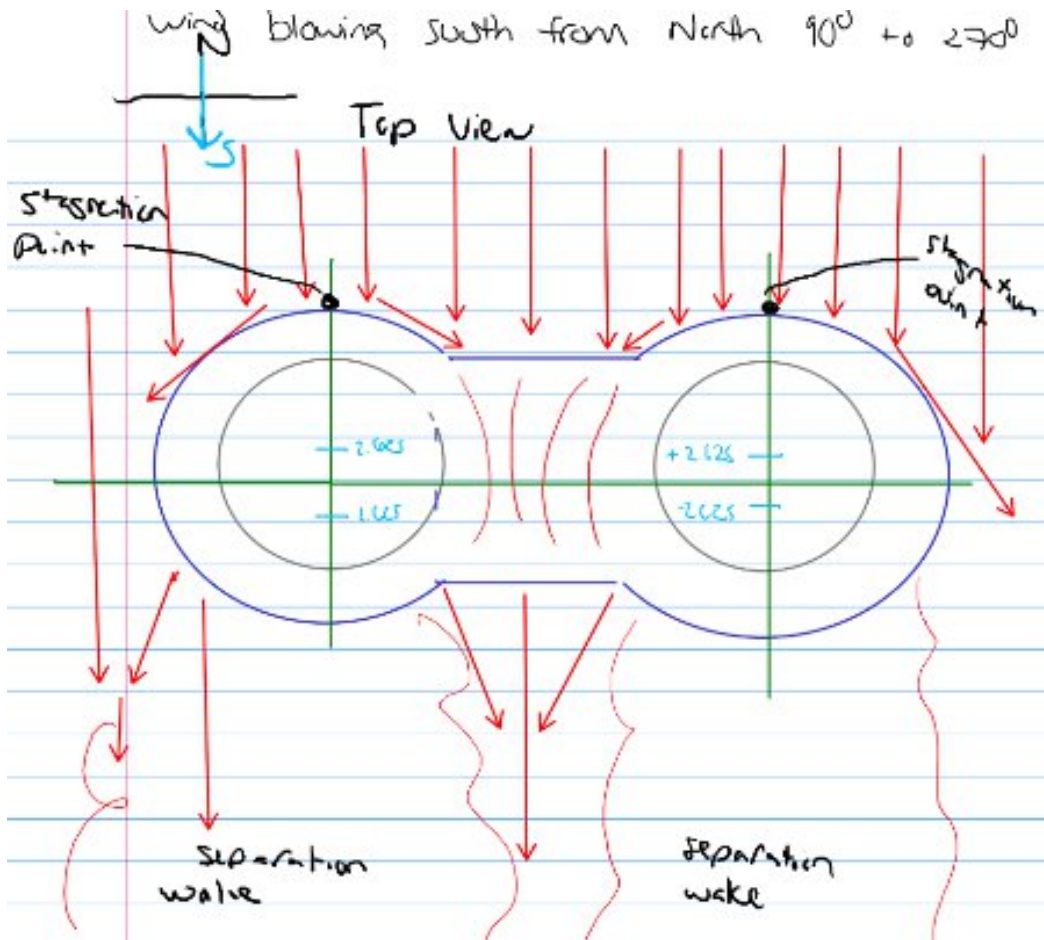 wind blowing south from North 90° to 270°
N
S
Top View
stagnation
point
stagnation
point
2.625
+2.625
-2.625
separation
wake
separation
wake